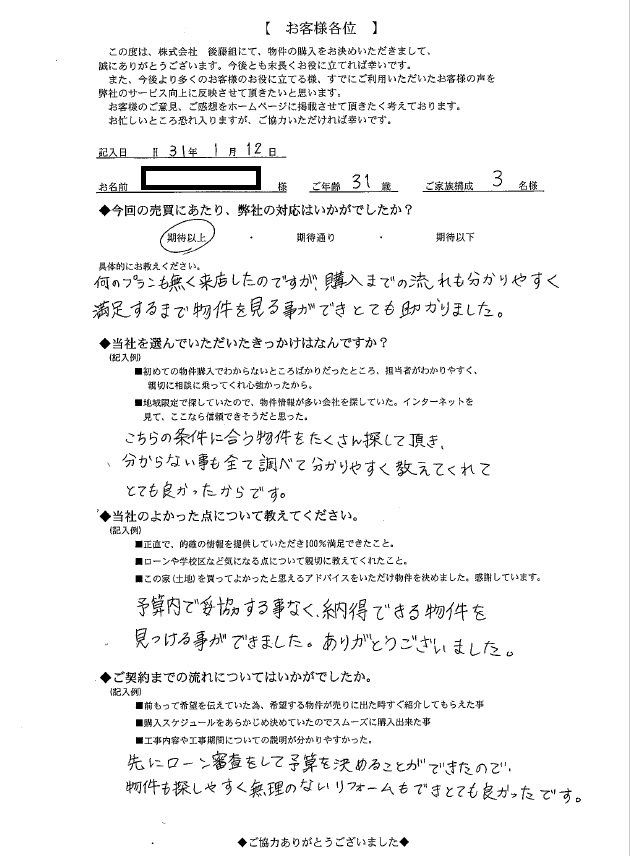 【 お客様各位 】
この度は、株式会社 後藤組にて、物件の購入をお決めいただきまして、
誠にありがとうございます。今後とも末長くお役に立てれば幸いです。
また、今後より多くのお客様のお役に立てる様、すでにご利用いただいたお客様の声を
弊社のサービス向上に反映させて頂きたいと思います。
お客様のご意見、ご感想をホームページに掲載させて頂きたく考えております。
お忙しいところ恐れ入りますが、ご協力いただければ幸いです。
記入日 H 31年 1月 12日
お名前 様 ご年齢 31 歳 ご家族構成 3 名様
◆今回の売買にあたり、弊社の対応はいかがでしたか？
期待以上 ・ 期待通り ・ 期待以下
具体的にお教えください。
何のプランも無く来店したのですが、購入までの流れも分かりやすく
満足するまで物件を見る事ができとても助かりました。
◆当社を選んでいただいたきっかけはなんですか？
(記入例)
■初めての物件購入でわからないところばかりだったところ、担当者がわかりやすく、
親切に相談に乗ってくれ心強かったから。
■地域限定で探していたので、物件情報が多い会社を探していた。インターネットを
見て、ここなら信頼できそうだと思った。
こちらの条件に合う物件をたくさん探して頂き、
分からない事も全て調べて分かりやすく教えてくれて
とても良かったからです。
◆当社のよかった点について教えてください。
(記入例)
■正直で、的確の情報を提供していただき100%満足できたこと。
■ローンや学校区など気になる点について親切に教えてくれたこと。
■この家(土地)を買ってよかったと思えるアドバイスをいただけ物件を決めました。感謝しています。
予算内で妥協する事なく、納得できる物件を
見つける事ができました。ありがとうございました。
◆ご契約までの流れについてはいかがでしたか。
(記入例)
■前もって希望を伝えていた為、希望する物件が売りに出た時すぐ紹介してもらえた事
■購入スケジュールをあらかじめ決めていたのでスムーズに購入出来た事
■工事内容や工事期間についての説明が分かりやすかった。
先にローン審査をして予算を決めることができたので、
物件も探しやすく無理のないリフォームもできとても良かったです。
◆ご協力ありがとうございました◆